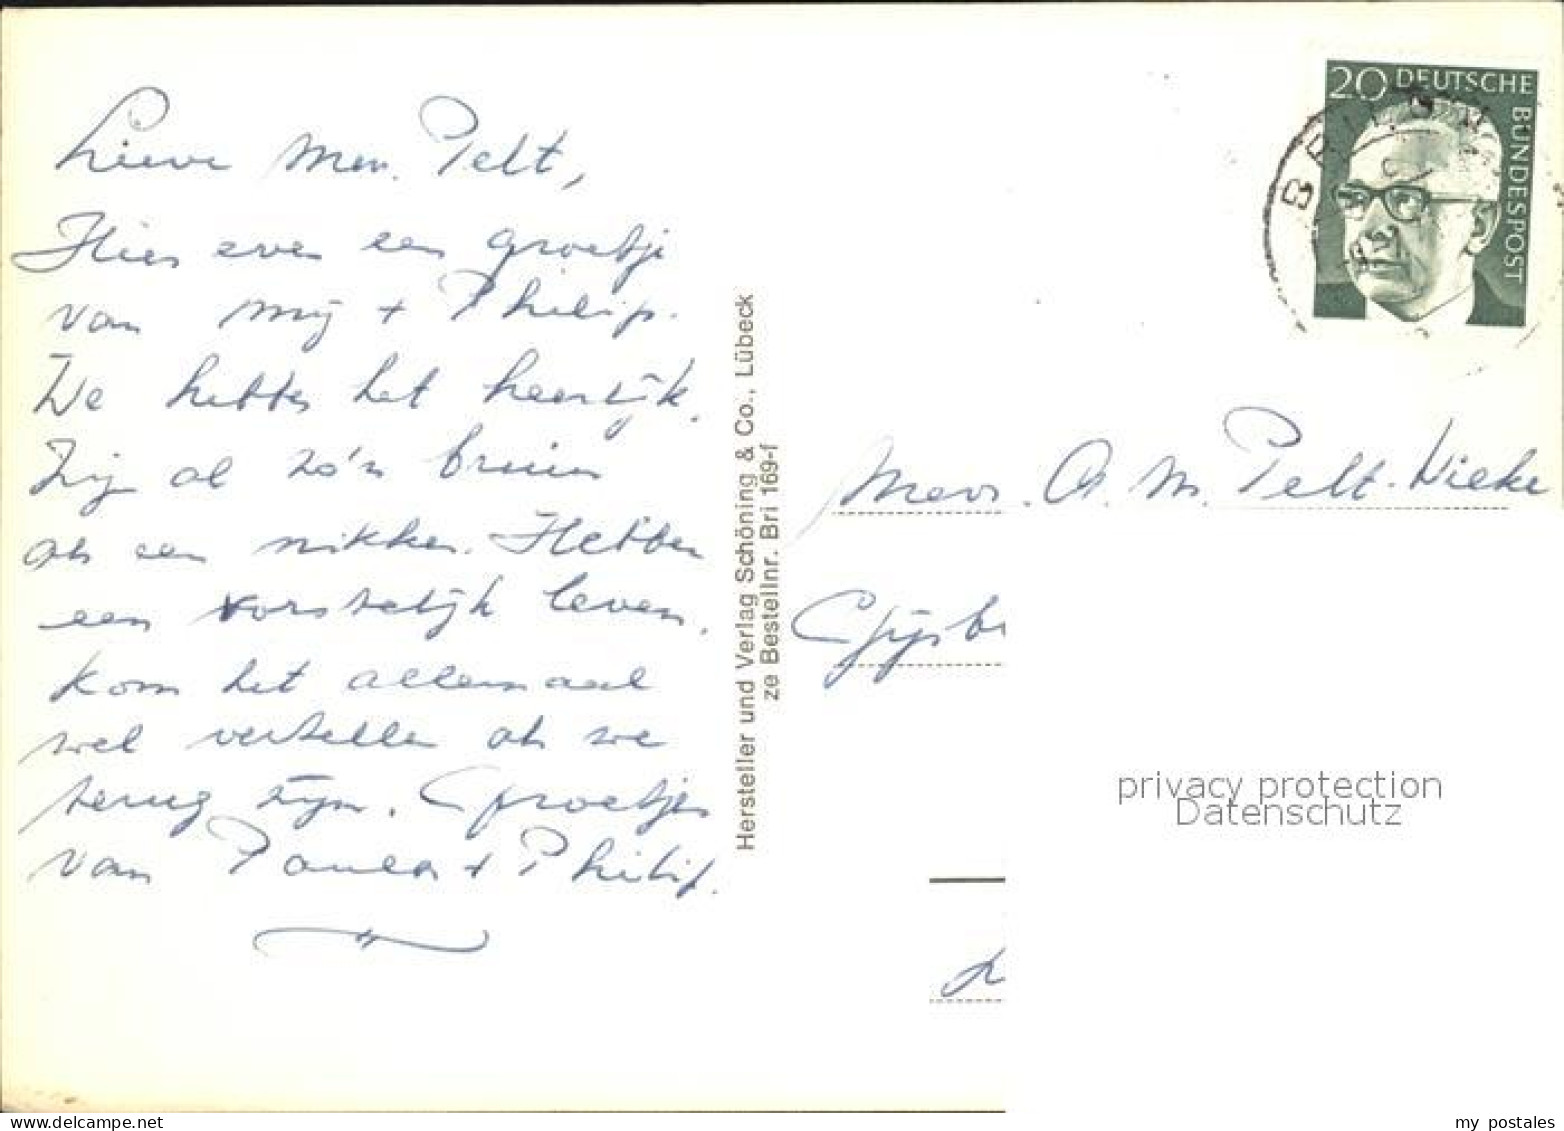 Lieve Mev. Pelt,
Hier even een groetje
van mij + Philip.
We hebben het heerlijk.
Zijn al zo'n bruin
als een nikker. Hebben
een vorstelijk leven.
Kom het allemaal
wel vertellen als we
terug zijn. Groetjes
van Paula + Philip.
Hersteller und Verlag Schöning & Co., Lübeck
ze Bestellnr. Bri 169-f
20 DEUTSCHE
BUNDESPOST
BRILON
Mevr. A. M. Pelt-Nieke
Gijsb
privacy protection
Datenschutz
my postales